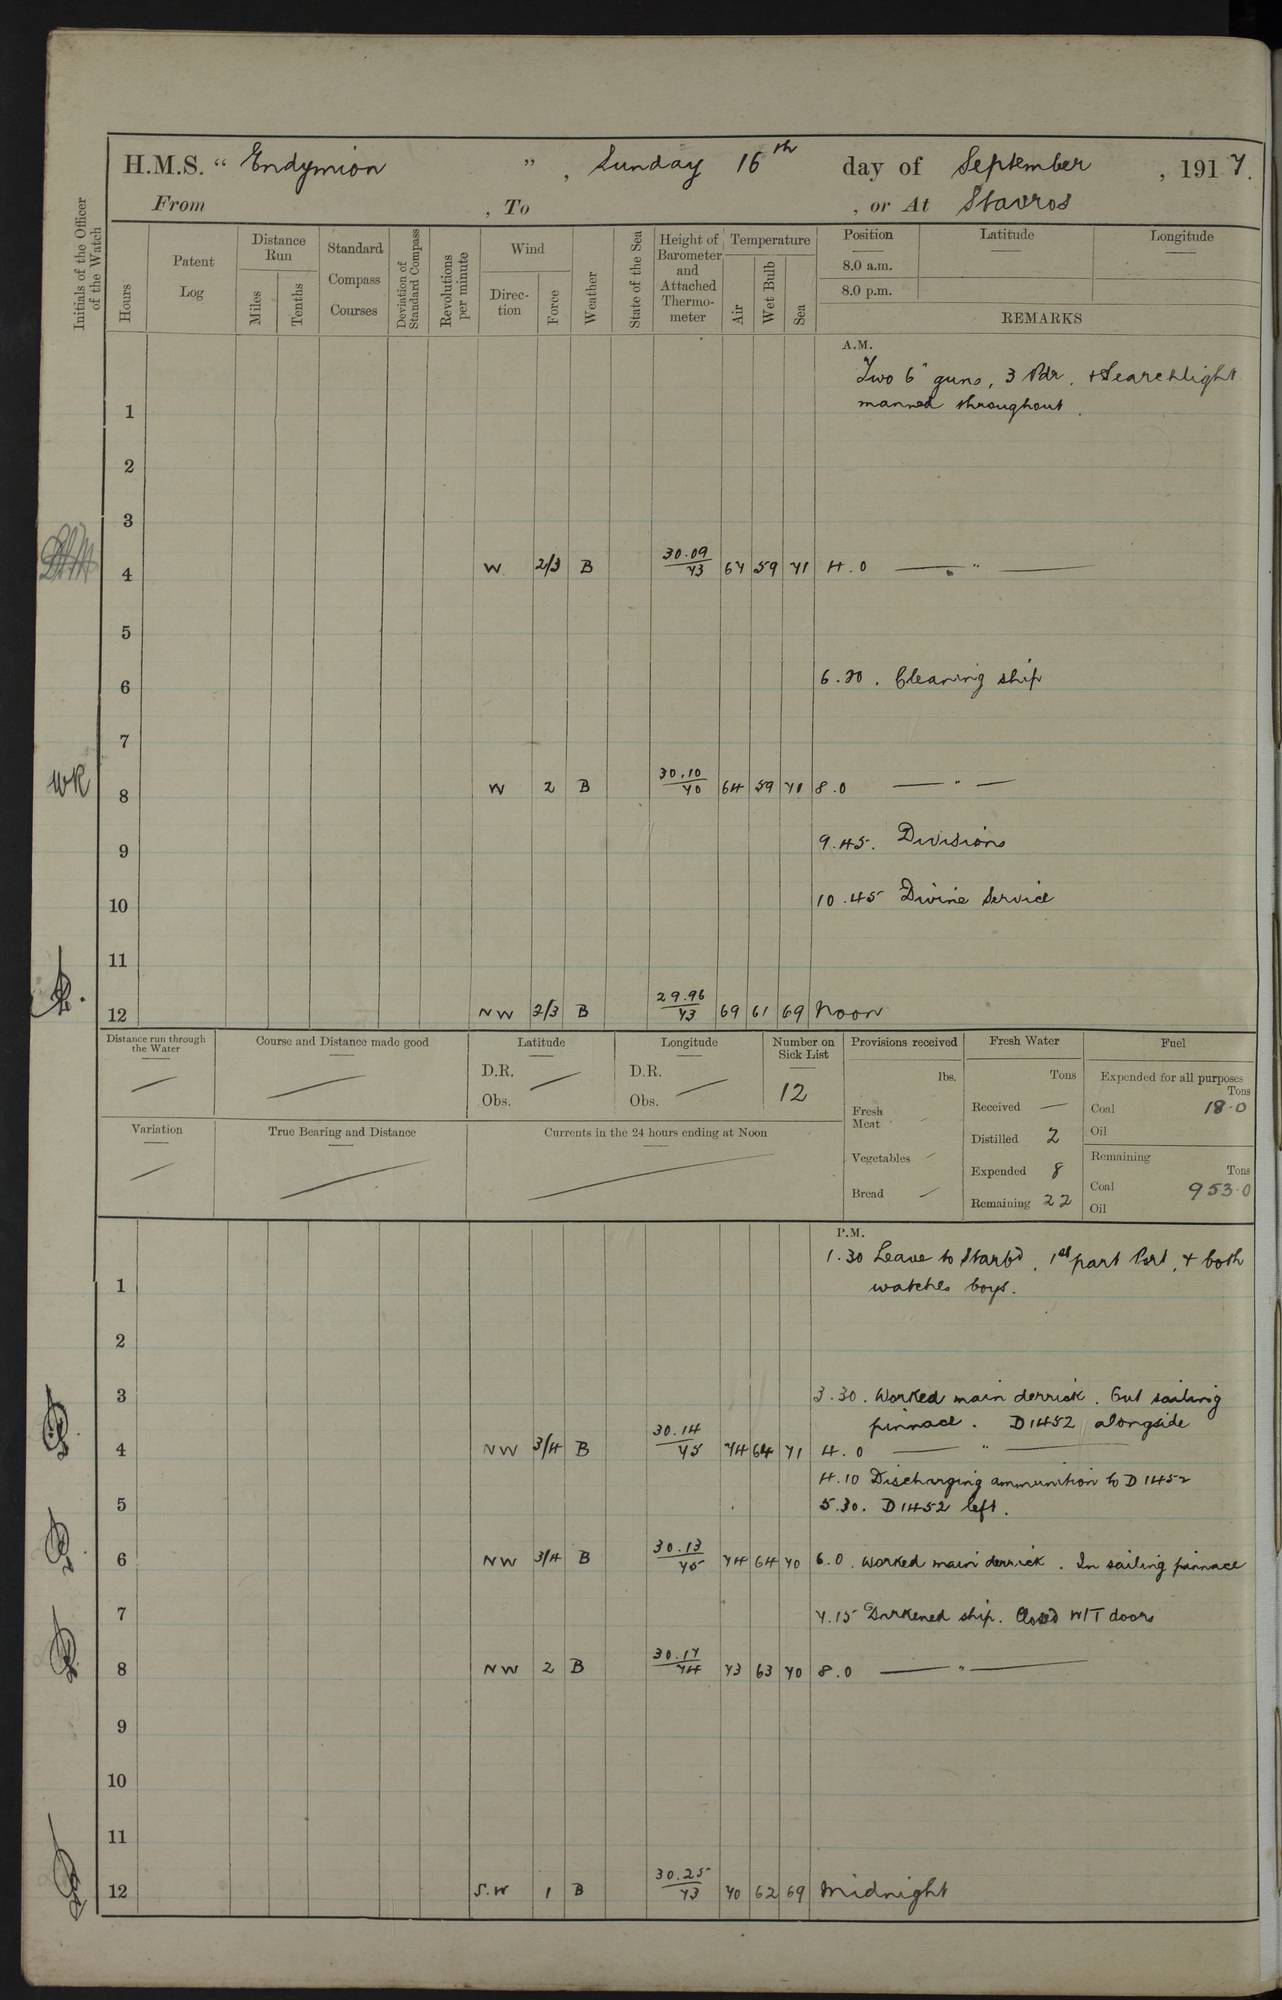 H.M.S. “ Endymion ” , Sunday 16th day of September , 1917.
From , To , or At Stavros
Initials of the Officer of the Watch
Hours
Patent Log
Distance Run
Miles
Tenths
Standard Compass Courses
Deviation of Standard Compass
Revolutions per minute
Wind
Direction
Force
Weather
State of the Sea
Height of Barometer and Attached Thermometer
Temperature
Air
Wet Bulb
Sea
Position Latitude Longitude
8.0 a.m.
8.0 p.m.
REMARKS
A.M.
Two 6" guns, 3 Pdr. + Searchlight
1 manned throughout.
2
3
4 W 2/3 B 30.09/73 67 59 71 4.0 — " —
5
6 6.20. Cleaning ship
7
WR
8 W 2 B 30.10/70 64 59 70 8.0 — " —
9 9.45. Divisions
10 10.45 Divine Service
11
12 NW 2/3 B 29.96/73 69 61 69 Noon
Distance run through the Water —
Course and Distance made good —
Latitude
D.R.
Obs. —
Longitude
D.R.
Obs. —
Number on Sick List
12
Provisions received
lbs.
Fresh Meat
Vegetables —
Bread —
Fresh Water
Tons
Received —
Distilled 2
Expended 8
Remaining 22
Fuel
Expended for all purposes
Tons
Coal 18.0
Oil
Remaining
Tons
Coal 953.0
Oil
Variation —
True Bearing and Distance —
Currents in the 24 hours ending at Noon —
P.M.
1.30 Leave to Starbd, 1st part Port, + both
1 watches boys.
2
3 3.30. Worked main derrick. Out sailing
pinnace. D1452 alongside
4 NW 3/4 B 30.14/75 74 64 71 4.0 — " —
4.10 Discharging ammunition to D1452
5 5.30. D1452 left.
6 NW 3/4 B 30.13/75 74 64 70 6.0. Worked main derrick. In sailing pinnace
7 7.15 Darkened ship. Closed W/T doors
8 NW 2 B 30.17/74 73 63 70 8.0 — " —
9
10
11
12 S.W 1 B 30.25/73 70 62 69 Midnight